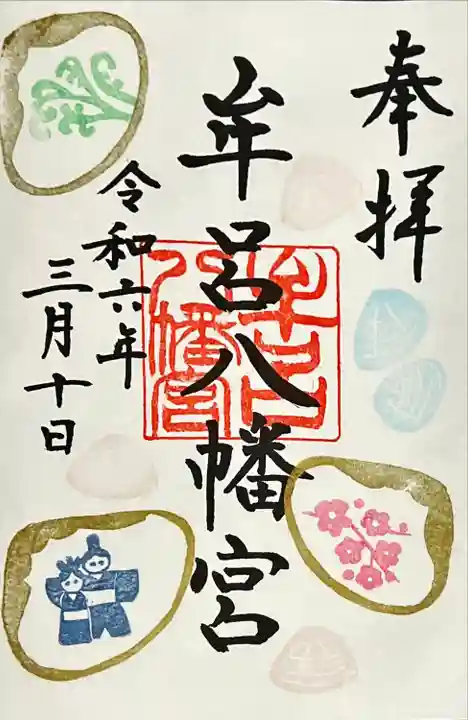 奉拝
牟呂八幡宮
令和六年
三月十日
牟呂
八幡宮